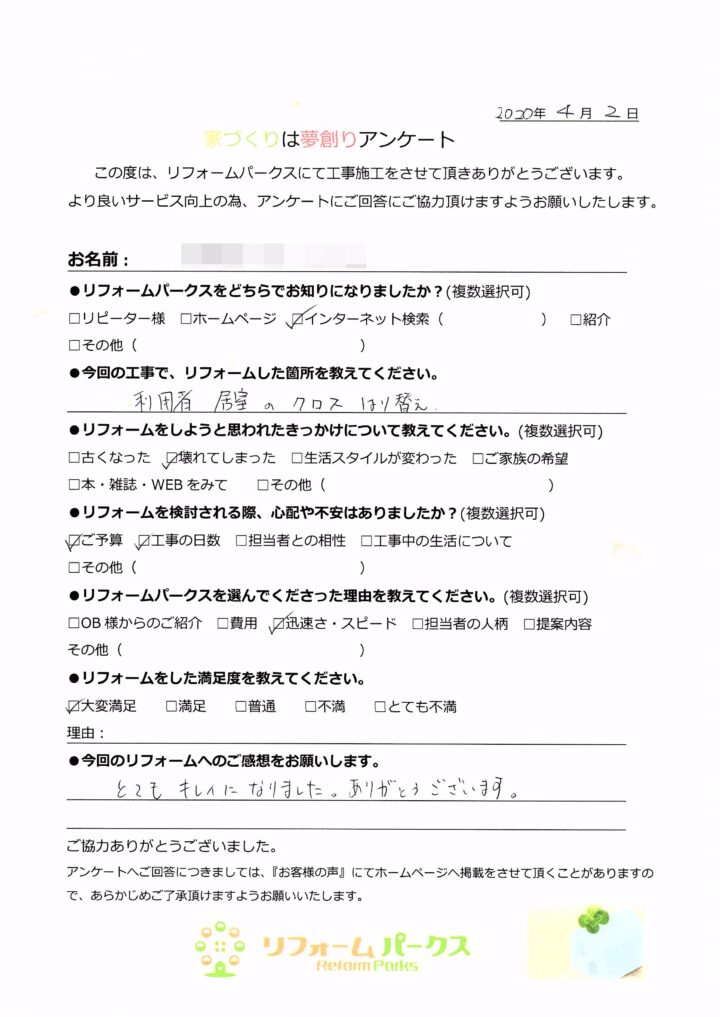 2020年 4月 2日
家づくりは夢創りアンケート
この度は、リフォームパークスにて工事施工をさせて頂きありがとうございます。
より良いサービス向上の為、アンケートにご回答にご協力頂けますようお願いしたします。
お名前：
●リフォームパークスをどちらでお知りになりましたか？(複数選択可)
□リピーター様 □ホームページ ☑インターネット検索（ ） □紹介
□その他（ ）
●今回の工事で、リフォームした箇所を教えてください。
利用者 居室の クロス はり替え.
●リフォームをしようと思われたきっかけについて教えてください。(複数選択可)
□古くなった ☑壊れてしまった □生活スタイルが変わった □ご家族の希望
□本・雑誌・WEBをみて □その他（ ）
●リフォームを検討される際、心配や不安はありましたか？(複数選択可)
☑ご予算 ☑工事の日数 □担当者との相性 □工事中の生活について
□その他（ ）
●リフォームパークスを選んでくださった理由を教えてください。(複数選択可)
□OB様からのご紹介 □費用 ☑迅速さ・スピード □担当者の人柄 □提案内容
その他（ ）
●リフォームをした満足度を教えてください。
☑大変満足 □満足 □普通 □不満 □とても不満
理由：
●今回のリフォームへのご感想をお願いします。
とても キレイに なりました。ありがとうございます。
ご協力ありがとうございました。
アンケートへご回答につきましては、『お客様の声』にてホームページへ掲載をさせて頂くことがありますの
で、あらかじめご了承頂けますようお願いいたします。
リフォームパークス
Reform Parks